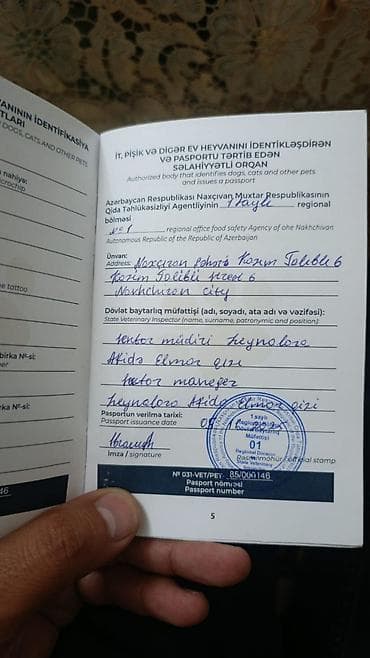 YVANININ İDENTİFİKASİYA
TLARI
DOGS, CATS AND OTHER PETS
nahiyə:
microchip
e tattoo
birka №-si:
er
ka №-si:
46
İT, PİŞİK VƏ DİGƏR EV HEYVANINI İDENTİKLƏŞDİRƏN
VƏ PASPORTU TƏRTİB EDƏN
SƏLAHİYYƏTLİ ORQAN
Authorized body that identifies dogs, cats and other pets
and issues a passport
Azərbaycan Respublikası Naxçıvan Muxtar Respublikasının
Qida Təhlükəsizliyi Agentliyinin 1 saylı regional
bölməsi
№1 regional office food safety Agency of the Nakhchivan
Autonomous Republic of the Republic of Azerbaijan
Ünvan:
Address: Naxçıvan şəhəri Kazım Talıblı 6
Kazım Talibli street 6
Nakhchivan city
Dövlət baytarlıq müfəttişi (adı, soyadı, ata adı və vəzifəsi):
State Veterinary Inspector (name, surname, patronymic and position):
sektor müdiri Zeynalova
Afidə Elmar qızı
sector maneger
Zeynalova Afidə Elmar qizi
Pasportun verilmə tarixi:
Passport issuance date
İmza / signature
Rəsmi möhür / official stamp
1 saylı
Regional Bölmə
Dövlət Baytarlıq
Müfəttişi
01
Regional Division
State Veterinary
№ 031-VET/PET 85/000146
Pasport nömrəsi
Passport number
5